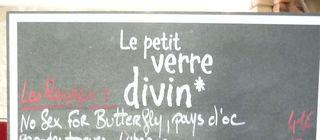 Le petit
verre
divin*
Les Rouges :
No Sex For Butterfly, pays d'oc